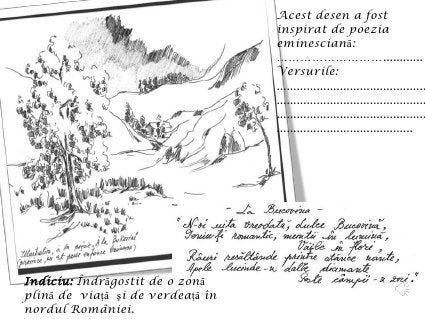 Acest desen a fost
inspirat de poezia
eminesciană:
Versurile:
- La Bucovina -
"N-oi uita vreodată, dulce Bucovină,
Geniu-ți romantic, munții în lumină,
Văile în flori,
Râuri resăltânde printre stânce nante,
Apele lucinde-n dalbe diamante
Peste câmpii-n zori."
Indiciu: Îndrăgostit de o zonă
plină de viață și de verdeață în
nordul României.